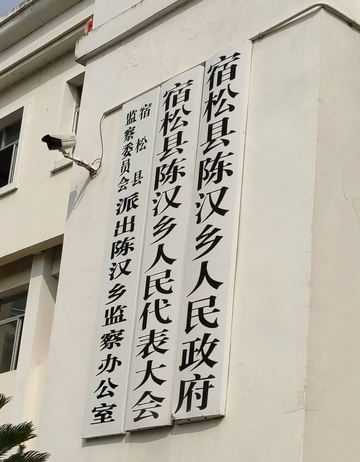 宿松县陈汉乡人民政府
宿松县陈汉乡人民代表大会
宿松县
监察委员会
派出陈汉乡监察办公室